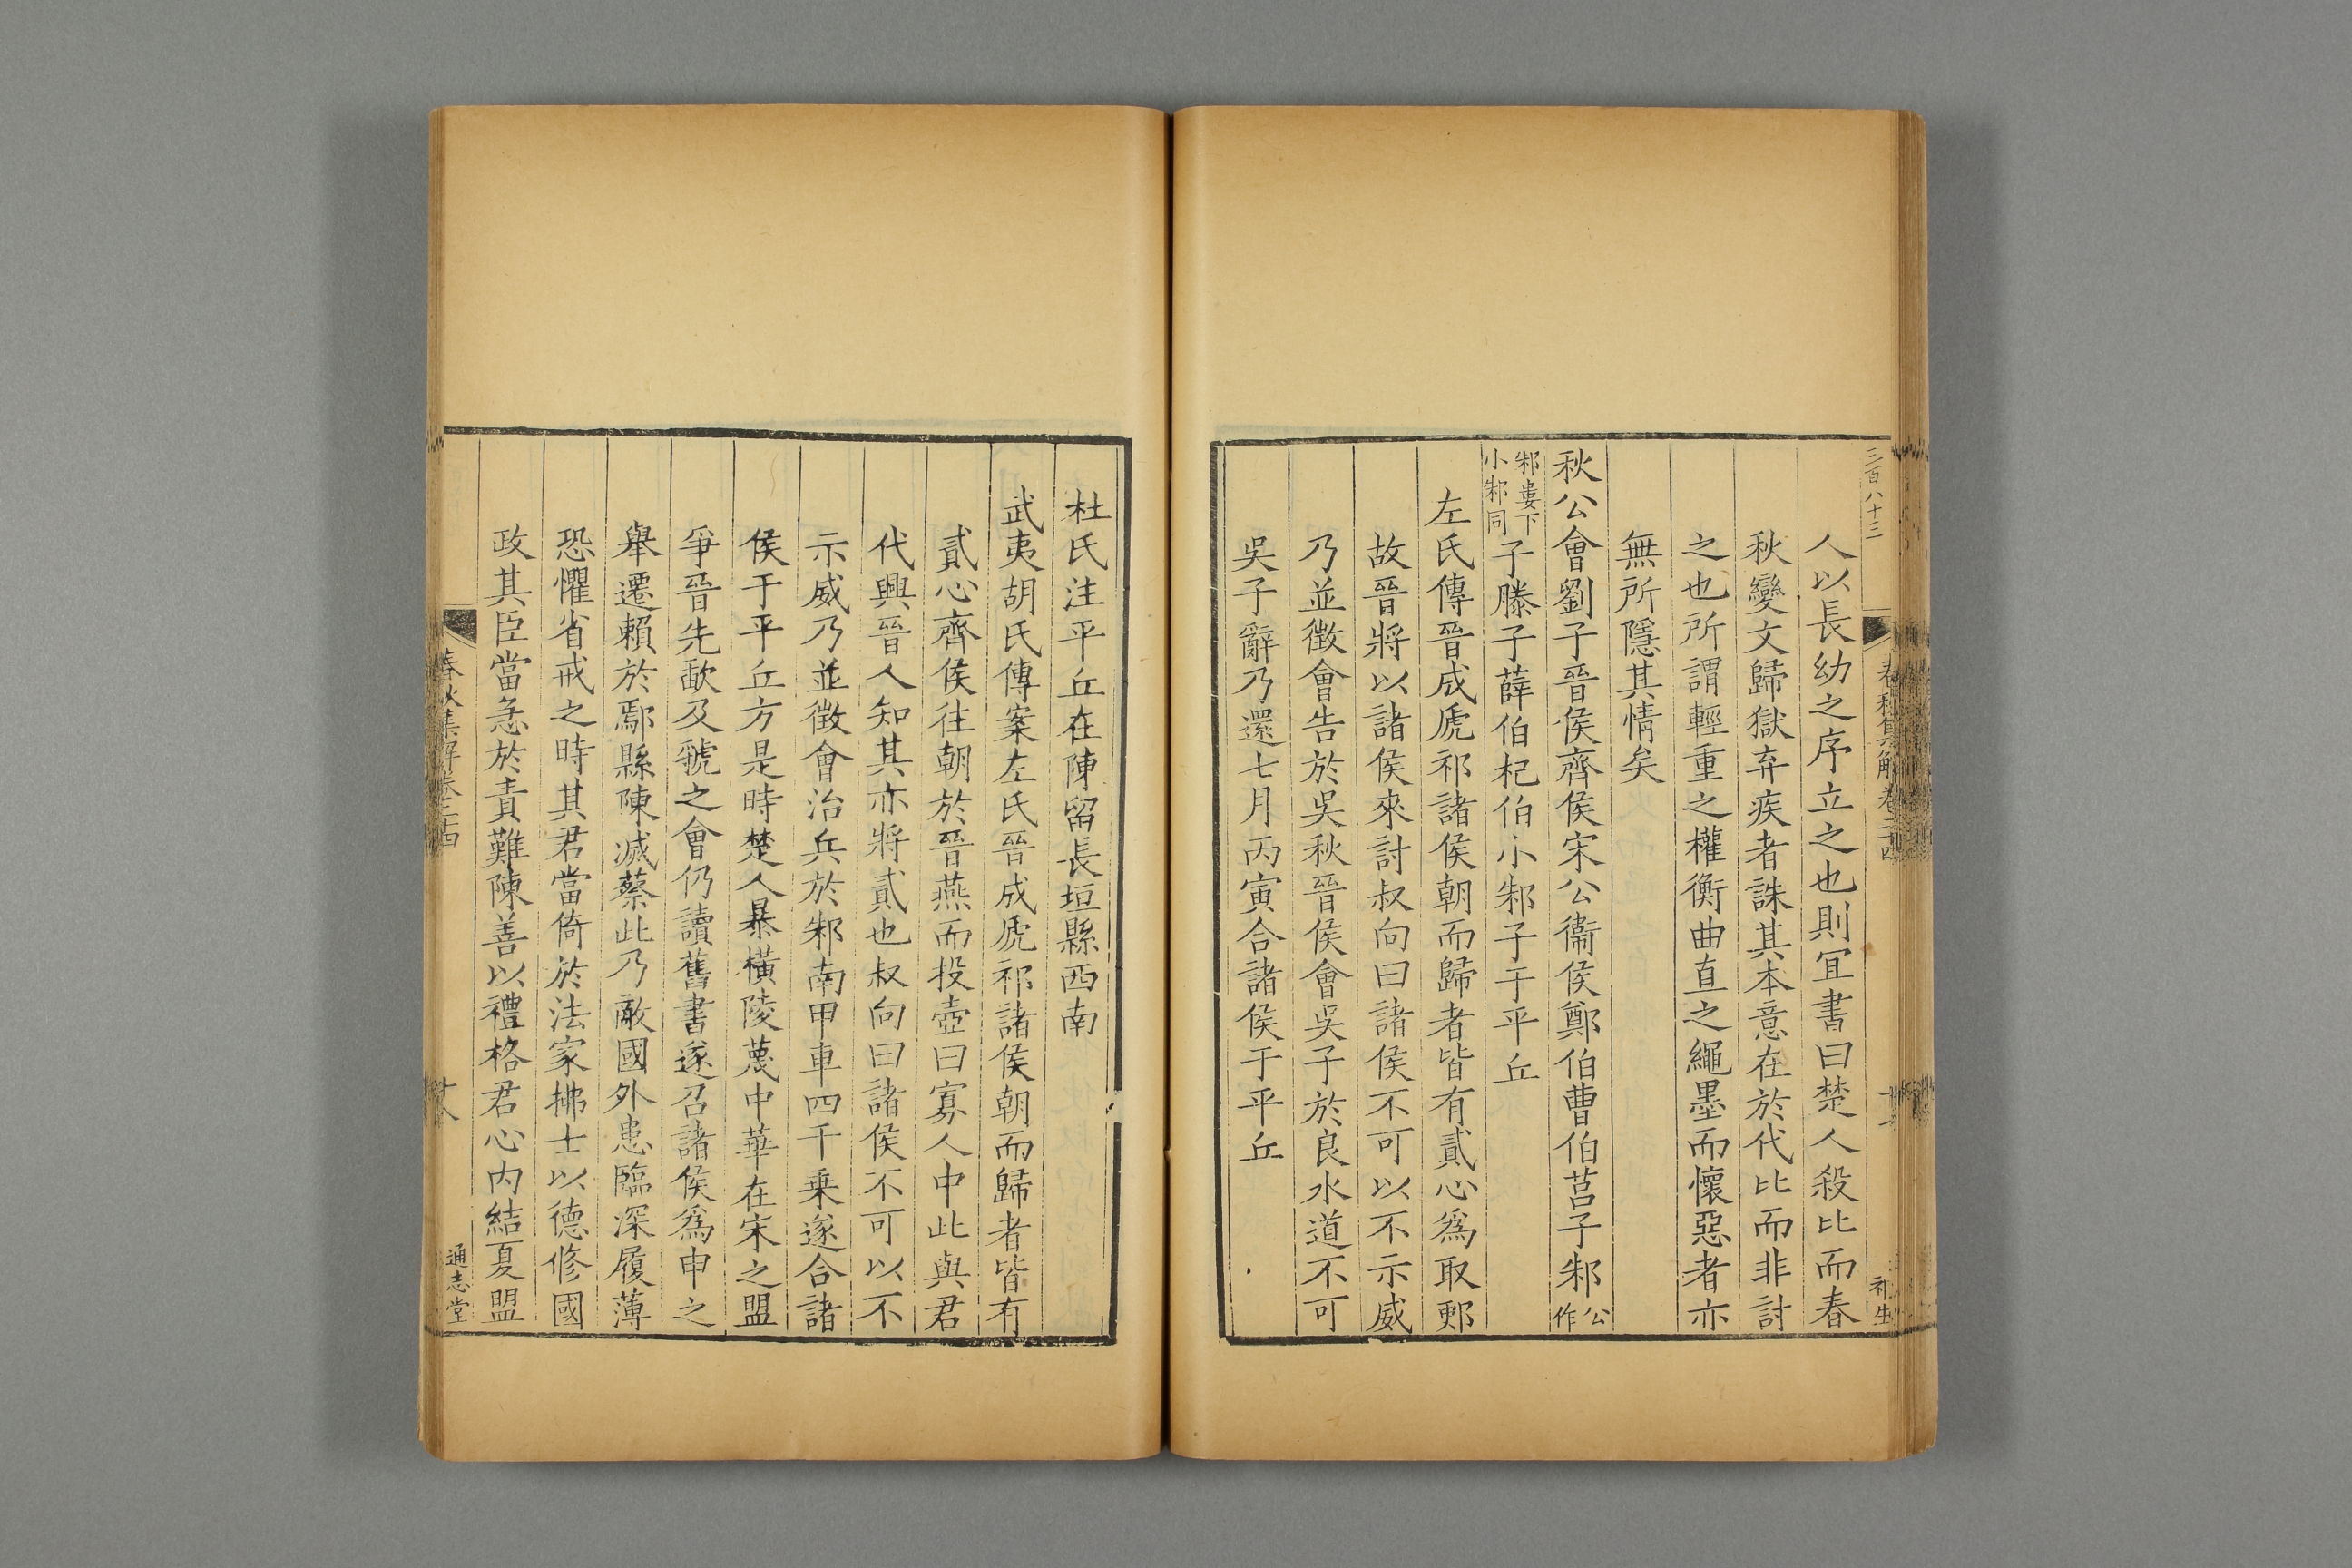 三百八十三
人以長幼之序立之也則宜書曰楚人殺比而春
秋變文歸獄弃疾者誅其本意在於代比而非討
之也所謂輕重之權衡曲直之繩墨而懷惡者亦
無所隱其情矣
秋公會劉子晉侯齊侯宋公衞侯鄭伯曹伯莒子邾公作
邾婁下小邾同子滕子薛伯杞伯小邾子于平丘
左氏傳晉成虒祁諸侯朝而歸者皆有貳心爲取郠
故晉將以諸侯來討叔向曰諸侯不可以不示威
乃並徵會告於吳秋晉侯會吳子於良水道不可
吳子辭乃還七月丙寅合諸侯于平丘
杜氏注平丘在陳留長垣縣西南
武夷胡氏傳案左氏晉成虒祁諸侯朝而歸者皆有
貳心齊侯往朝於晉燕而投壺曰寡人中此與君
代興晉人知其亦將貳也叔向曰諸侯不可以不
示威乃並徵會治兵於邾南甲車四千乗遂合諸
侯于平丘方是時楚人暴橫陵蔑中華在宋之盟
爭晉先歃及虢之會仍讀舊書遂召諸侯爲申之
舉遷賴於鄢縣陳滅蔡此乃敵國外患臨深履薄
恐懼省戒之時其君當倚於法家拂士以德修國
政其臣當急於責難陳善以禮格君心内結夏盟
春秋集解卷二十四
十八
通志堂